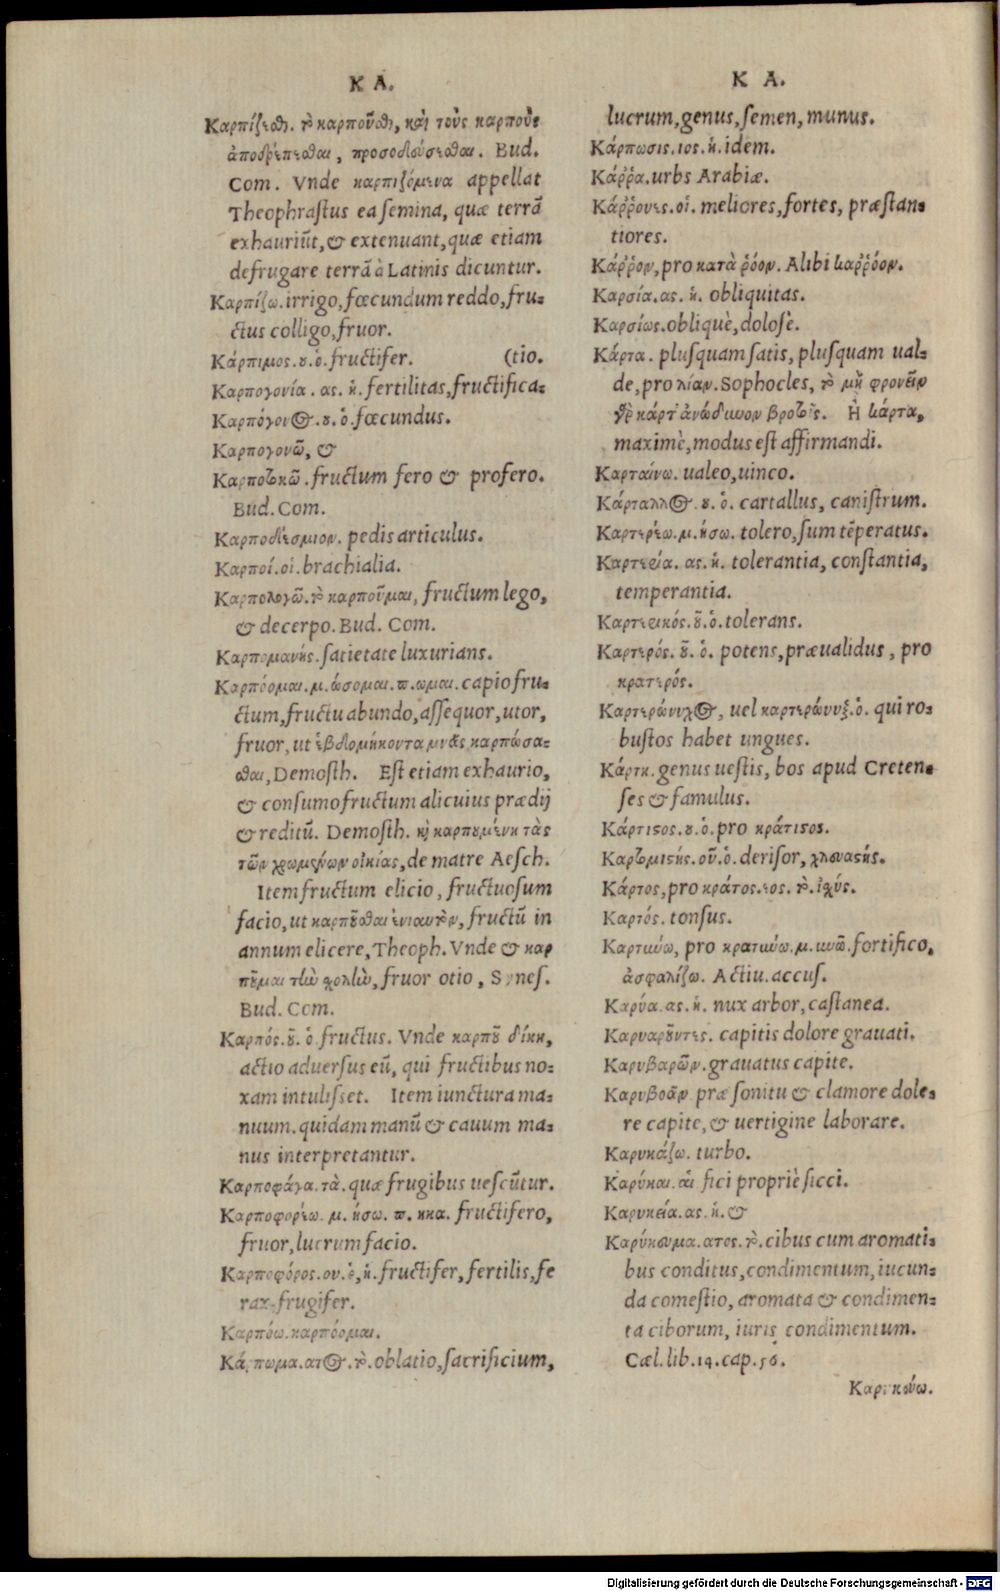 K A.
Καρπίζεσθαι. τὸ καρποῦσθαι, καὶ τοὺς καρποὺς
ἀποδρέπεσθαι, προσοδεύεσθαι. Bud.
Com. Vnde καρπιζόμενα appellat
Theophrastus ea semina, quæ terrã
exhauriũt, & extenuant, quæ etiam
defrugare terrã à Latinis dicuntur.
Καρπίζω. irrigo, fœcundum reddo, fru-
ctus colligo, fruor.
Κάρπιμος.ου.ὁ. fructifer. (tio.
Καρπογονία. ας. ἡ. fertilitas, fructifica-
Καρπόγονος.ου.ὁ. fœcundus.
Καρπογονῶ, &
Καρποτοκῶ. fructum fero & profero.
Bud. Com.
Καρποδέσμιον. pedis articulus.
Καρποί.οἱ. brachialia.
Καρπολογῶ. τὸ καρποῦμαι, fructum lego,
& decerpo. Bud. Com.
Καρπομανής. satietate luxurians.
Καρπόομαι.μ.ώσομαι.π.ωμαι. capio fru-
ctum, fructu abundo, assequor, utor,
fruor, ut ἑβδομήκοντα μνᾶς καρπώσα-
σθαι, Demosth. Est etiam exhaurio,
& consumo fructum alicuius prædij
& reditũ. Demosth. καὶ καρπουμένη τὰς
τῶν χρωμένων οἰκίας, de matre Aesch.
Item fructum elicio, fructuosum
facio, ut καρποῦσθαι ἐνιαυτὸν, fructũ in
annum elicere, Theoph. Vnde & καρ
ποῦμαι τὴν χολὴν, fruor otio, Synes.
Bud. Com.
Καρπός.οῦ. ὁ fructus. Vnde καρποῦ δίκη,
actio aduersus eũ, qui fructibus no-
xam intulisset. Item iunctura ma-
nuum. quidam manũ & cauum ma-
nus interpretantur.
Καρποφάγα.τὰ. quæ frugibus uescũtur.
Καρποφορέω. μ. ήσω. π. ηκα. fructifero,
fruor, lucrum facio.
Καρποφόρος.ου.ὁ, ἡ. fructifer, fertilis, fe
rax, frugifer.
Καρπόω. καρπόομαι.
Κάρπωμα.ατος.τὸ. oblatio, sacrificium,
K A.
lucrum, genus, semen, munus.
Κάρπωσις.ιος.ἡ. idem.
Κάῤῥα. urbs Arabiæ.
Κάῤῥονες.οἱ. meliores, fortes, præstan-
tiores.
Κάῤῥον, pro κατὰ ῥόον. Alibi καῤῥόον.
Καρσία.ας. ἡ. obliquitas.
Καρσίως. obliquè, dolosè.
Κάρτα. plusquam satis, plusquam ual-
de, pro λίαν. Sophocles, τὸ μὴ φρονεῖν
γὰρ κάρτ' ἀνώδυνον βροτοῖς. Ἦ κάρτα,
maximè, modus est affirmandi.
Καρταίνω. ualeo, uinco.
Κάρταλλος.ου. ὁ. cartallus, canistrum.
Καρτερέω.μ.ήσω. tolero, sum tẽperatus.
Καρτερία. ας. ἡ. tolerantia, constantia,
temperantia.
Καρτερικός.οῦ.ὁ. tolerans.
Καρτερός.οῦ. ὁ. potens, præualidus, pro
κρατερός.
Καρτερώνυχος, uel καρτερώνυξ.ὁ. qui ro-
bustos habet ungues.
Κάρτη. genus uestis, bos apud Creten-
ses & famulus.
Κάρτιστος.ου.ὁ. pro κράτιστος.
Καρτομιστής.οῦ.ὁ. derisor, χλευαστής.
Κάρτος, pro κράτος.εος. τὸ. ἰσχύς.
Καρτός. tonsus.
Καρτύνω, pro κρατύνω.μ.υνῶ. fortifico,
ἀσφαλίζω. Actiu. accus.
Καρύα.ας.ἡ. nux arbor, castanea.
Καρυαροῦντες. capitis dolore grauati.
Καρυβαρῶν. grauatus capite.
Καρυβοᾶν præ sonitu & clamore dole-
re capite, & uertigine laborare.
Καρυκάζω. turbo.
Καρύκαι.αἱ fici propriè sicci.
Καρυκεία.ας.ἡ. &
Καρύκευμα.ατος.τὸ. cibus cum aromati-
bus conditus, condimentum, iucun-
da comestio, aromata & condimen-
ta ciborum, iuris condimentum.
Cæl. lib. 14. cap. 56.
Καρυκεύω.
Digitalisierung gefördert durch die Deutsche Forschungsgemeinschaft - DFG